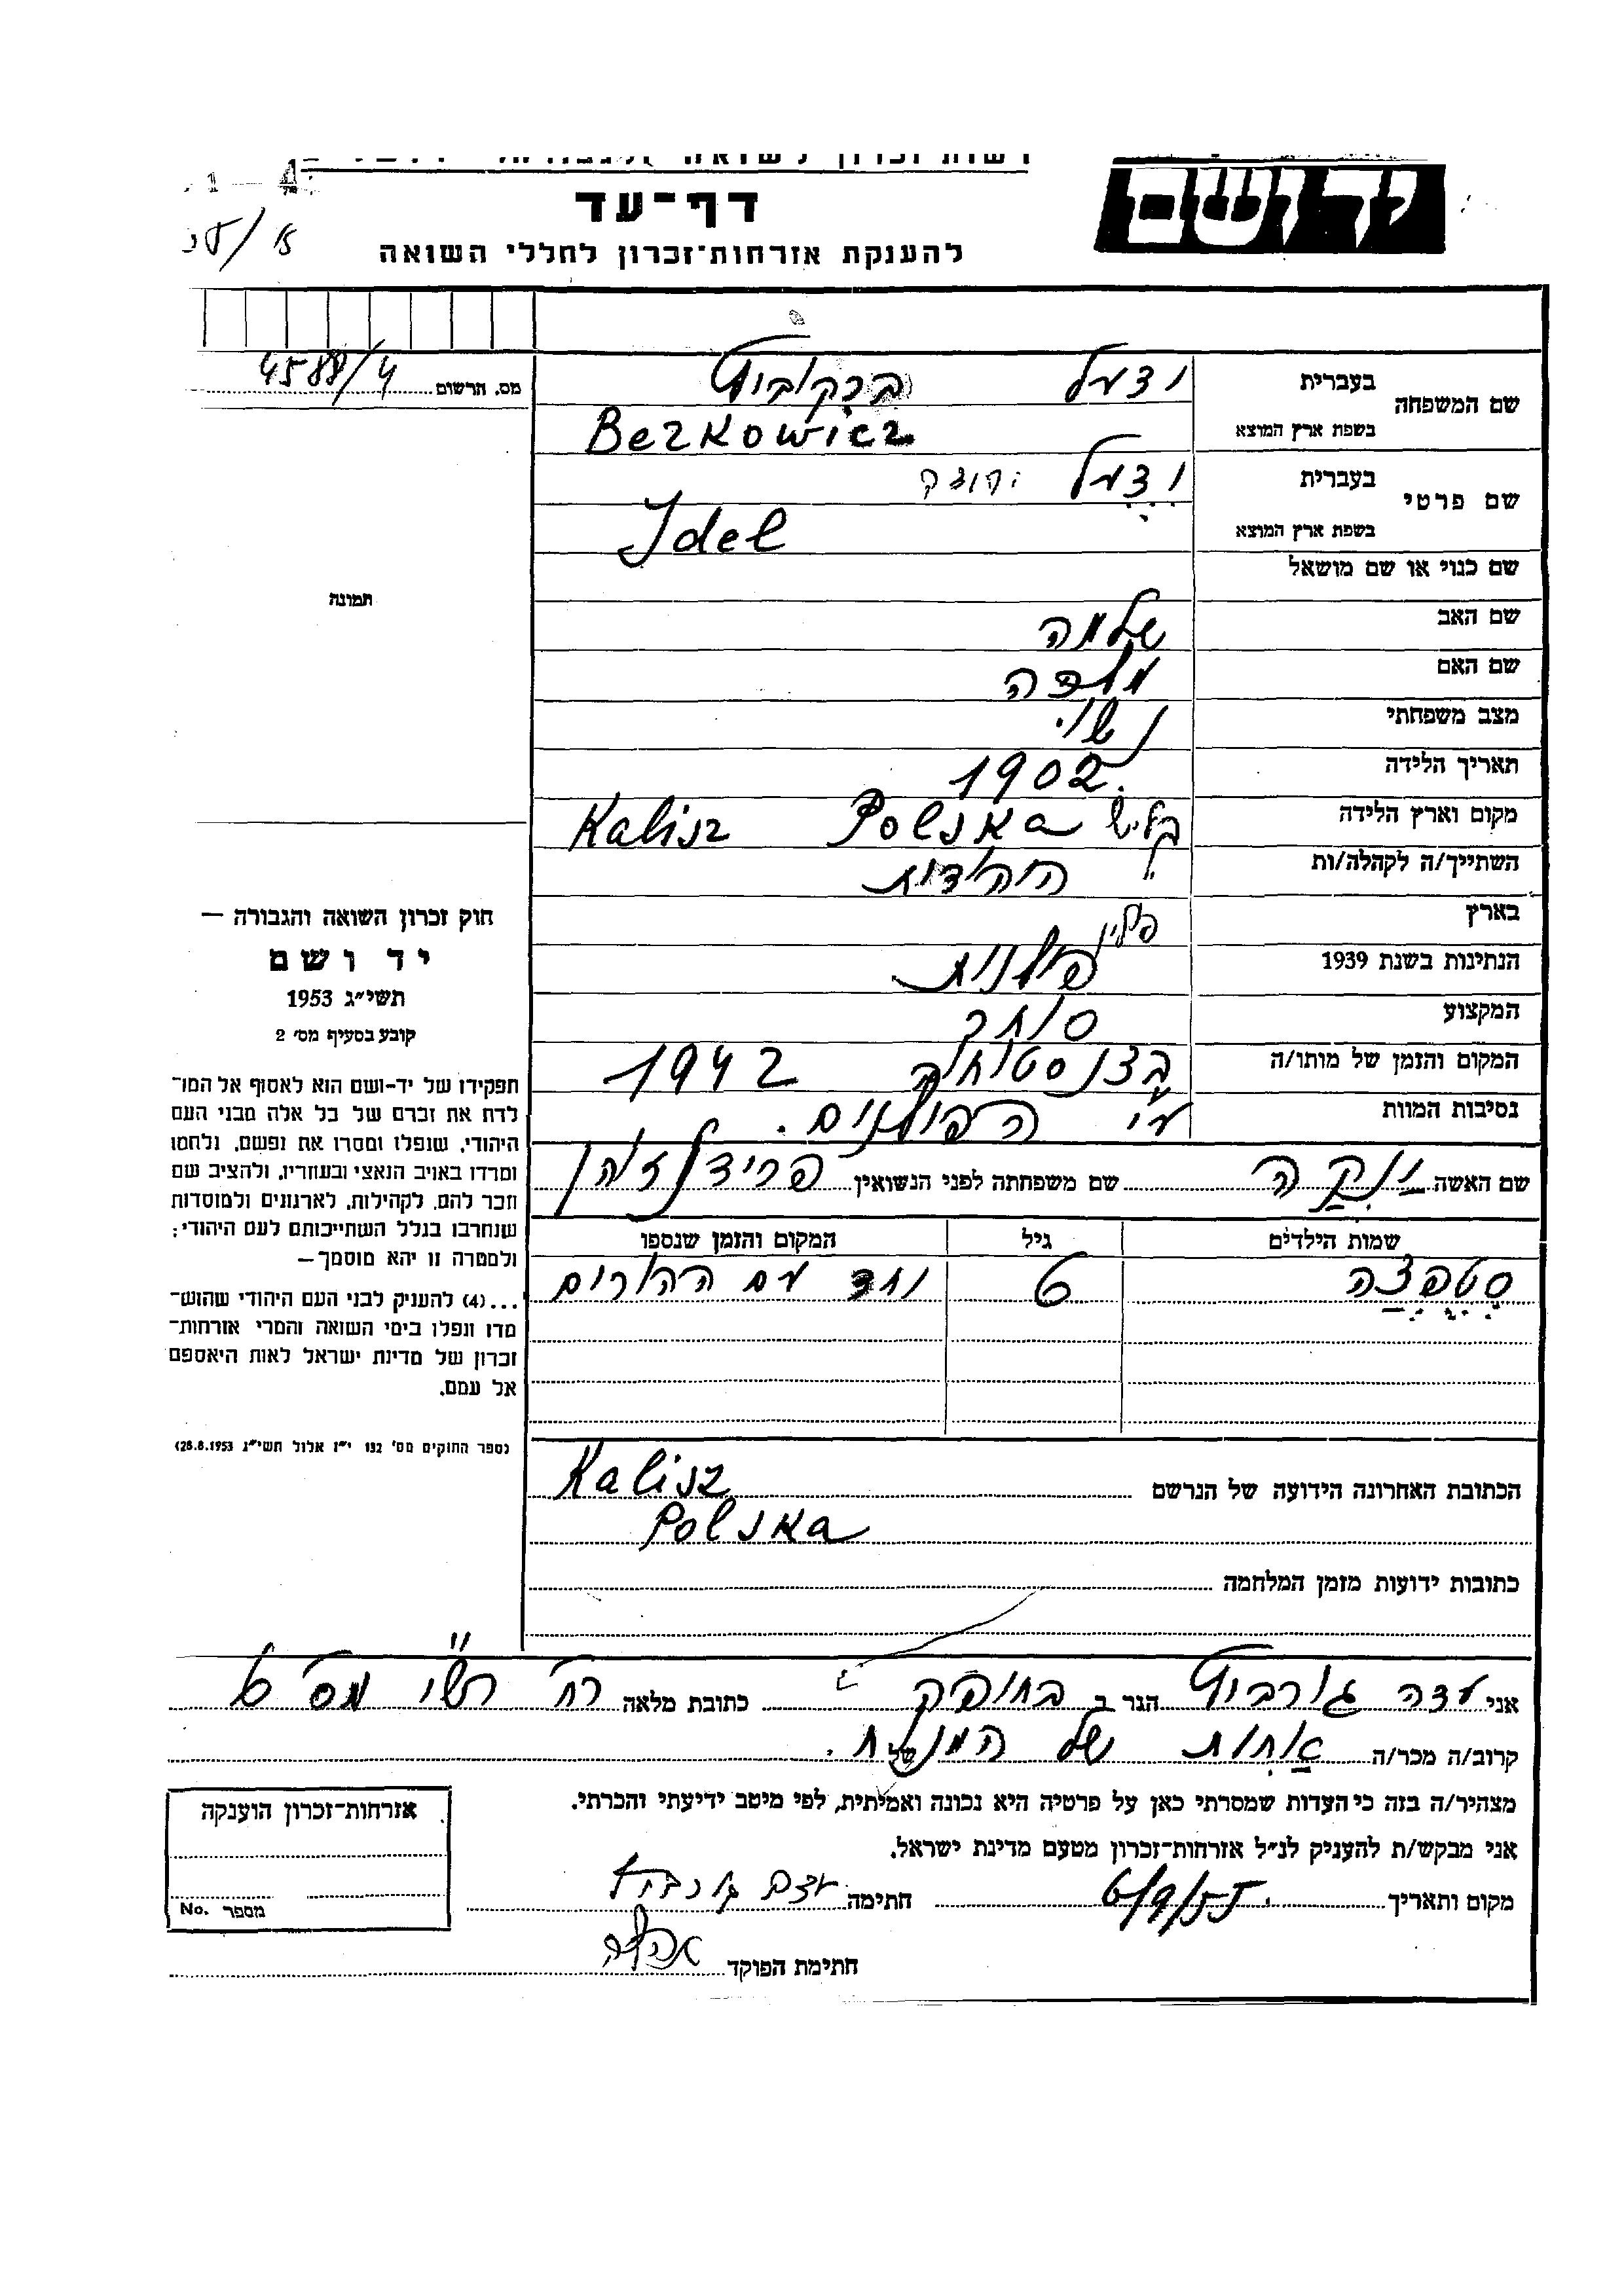 יד ושם
דף־עד
להענקת אזרחות־זכרון לחללי השואה
מס. תרשום 4588/4
שם המשפחה
בעברית ברקוביץ
בשפת ארץ המוצא Berkowicz
שם פרטי
בעברית
בשפת ארץ המוצא Idel
שם כנוי או שם מושאל
שם האב שלמה
שם האם
מצב משפחתי נשוי
תאריך הלידה 1902
מקום וארץ הלידה קליש Polska Kalisz
השתייך/ה לקהלה/ות " היהדות
בארץ פולין
הנתינות בשנת 1939 פולנית
המקצוע סוחר
המקום והזמן של מותו/ה 1942
נסיבות המוות ע"י הפולנים.
שם האשה שם משפחתה לפני הנשואין
שמות הילדים גיל המקום והזמן שנספו
סטפצה 6 יחד עם ההורים
הכתובת האחרונה הידועה של הנרשם Kalisz
Polska
כתובות ידועות מזמן המלחמה
תמונה
חוק זכרון השואה והגבורה —
יד ושם
תשי״ג 1953
קובע בסעיף מס׳ 2
תפקידו של יד-ושם הוא לאסוף אל המו־
לדת את זכרם של כל אלה מבני העם
היהודי, שנפלו ומסרו את נפשם, נלחמו
ומרדו באויב הנאצי ובעוזריו, ולהציב שם
וזכר להם, לקהילות, לארגונים ולמוסדות
שנחרבו בגלל השתייכותם לעם היהודי;
ולמטרה זו יהא מוסמך—
...(4) להעניק לבני העם היהודי שהוש־
מדו ונפלו בימי השואה והמרי אזרחות־
זכרון של מדינת ישראל לאות היאספם
אל עמם.
(ספר החוקים מס׳ 132 י״ז אלול תשי״ג 28.8.1953)
אני עדה גורביץ הגר ב כתובת מלאה רח' רש"י מס' 6
קרוב/ה מכר/ה אחות של המנוח.
מצהיר/ה בזה כי העדות שמסרתי כאן על פרטיה היא נכונה ואמיתית, לפי מיטב ידיעתי והכרתי.
אני מבקש/ת להעניק לנ״ל אזרחות־זכרון מטעם מדינת ישראל.
מקום ותאריך 6/9/55 חתימה עדה גורביץ
חתימת הפוקד
אזרחות־זכרון הוענקה
מספר No.